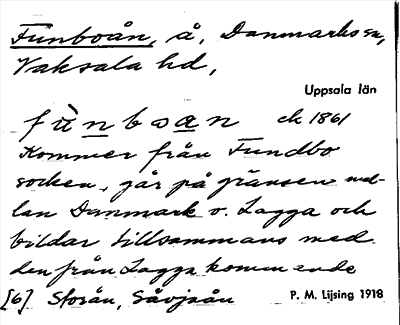 Funboån, å, Danmarks sn,
Vaksala hd,
Uppsala län
fùnboan ek 1861
Kommer från Fundbo
socken, går på gränsen med-
lan Danmark o. Lagga och
bildar tillsammans med
den från Lagga kommende
[6] Storån, Sävjaån P. M. Lijsing 1918